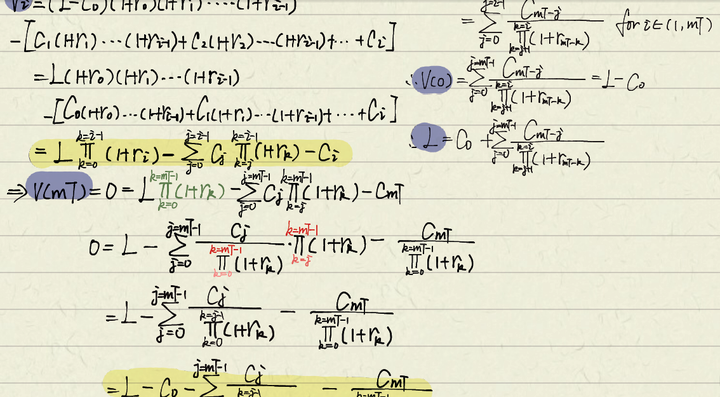 V_i = (L-C_0)(1+r_0)(1+r_1)⋯⋯(1+r_{i-1})
-[C_1(1+r_1)⋯(1+r_{i-1})+C_2(1+r_2)⋯(1+r_{i-1})+⋯+C_i]
=L(1+r_0)(1+r_1)⋯(1+r_{i-1})
-[C_0(1+r_0)⋯(1+r_{i-1})+C_1(1+r_1)⋯(1+r_{i-1})+⋯+C_i]
=L∏_{k=0}^{k=i-1}(1+r_i)-∑_{j=0}^{j=i-1}C_j∏_{k=j}^{k=i-1}(1+r_k)-C_i
⇒V(mT)=0=L∏_{k=0}^{k=mT-1}(1+r_k)-∑_{j=0}^{j=mT-1}C_j∏_{k=j}^{k=mT-1}(1+r_k)-C_{mT}
0=L-∑_{j=0}^{j=mT-1}\frac{C_j}{∏_{k=0}^{k=mT-1}(1+r_k)}·∏_{k=j}^{k=mT-1}(1+r_k)-\frac{C_{mT}}{∏_{k=0}^{k=mT-1}(1+r_k)}
=L-∑_{j=0}^{j=mT-1}\frac{C_j}{∏_{k=0}^{k=j-1}(1+r_k)}-\frac{C_{mT}}{∏_{k=0}^{k=mT-1}(1+r_k)}
=L-C_0-∑^{j=mT-1}\frac{C_j}{k=j-1}-\frac{C_{mT}}{k=mT-1}
=∑_{j=0}\frac{C_{mT-j}}{∏_{k=j+1}(1+r_{mT-k})} for i∈(1,mT)
∴V(0)=∑_{j=0}^{j=mT-1}\frac{C_{mT-j}}{∏_{k=j+1}(1+r_{mT-k})}=L-C_0
∴L=C_0+∑_{j=0}^{j=mT-1}\frac{C_{mT-j}}{∏_{k=j+1}(1+r_{mT-k})}